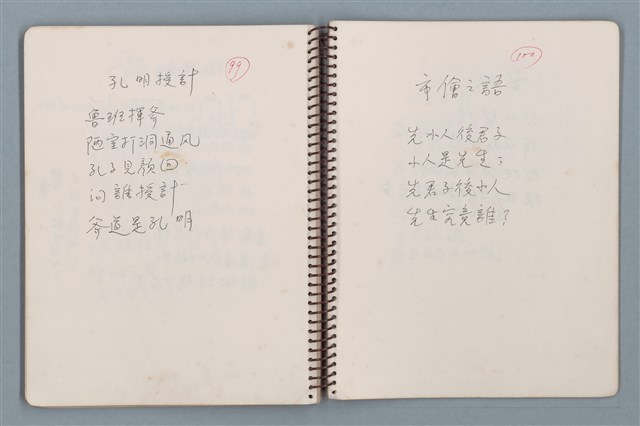 99
孔明授計
魯班揮斧
陋室打洞通风
孔子見顏回
问誰授計
斧道是孔明
100
市儈之語
先小人後君子
小人是先生;
先君子後小人
先生究竟誰?